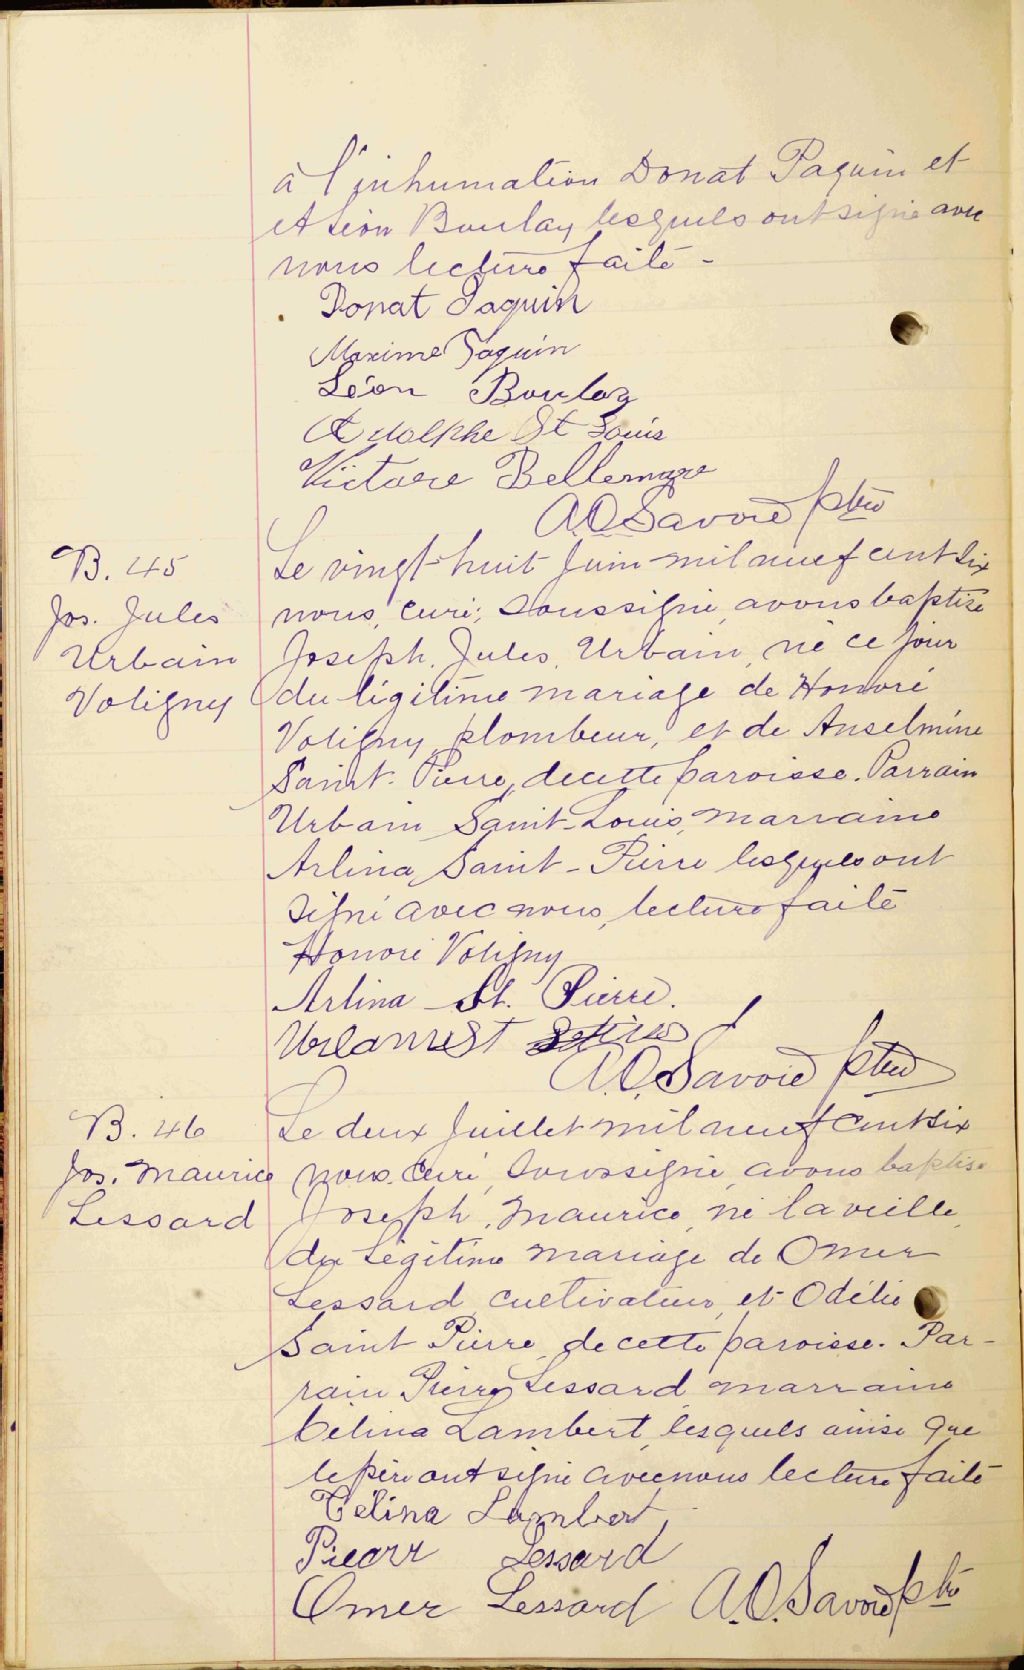 à l'inhumation Donat Paquin et
et Léon Boulay lesquels ont signé avec
nous lecture faite -
Donat Paquin
Maxime Paquin
Léon Boulay
Adolphe St Louis
Victore Bellemare
A.O. Savoie ptre
B. 45
Jos. Jules
Urbain
Voligny
Le vingt-huit Juin mil neuf cent six
nous, curé, soussigné, avons baptisé
Joseph, Jules, Urbain, né ce jour
du légitime mariage de Honoré
Voligny, plombeur, et de Anselmine
Saint-Pierre, de cette paroisse. Parrain
Urbain Saint-Louis, marraine
Arlina Saint-Pierre lesquels ont
signé avec nous, lecture faite
Honoré Voligny
Arlina St. Pierre.
St
A.O. Savoie ptre
B. 46
Jos. Maurice
Lessard
Le deux Juillet mil neuf cent six
nous, curé, soussigné, avons baptisé
Joseph, Maurice, né la veille,
du légitime mariage de Omer
Lessard, cultivateur, et Odélie
Saint Pierre, de cette paroisse. Par-
rain Pierre Lessard marraine
Célina Lambert, lesquels ainsi que
le père ont signé avec nous lecture faite
Célina Lambert
Piearr Lessard
Omer Lessard A.O. Savoie ptre